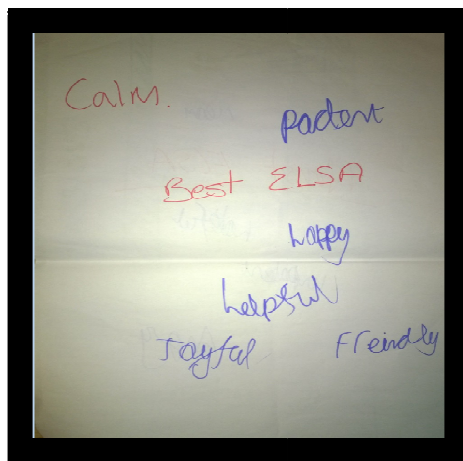 Calm.
Patient
Best ELSA
happy
helpful
Joyful
Freindly